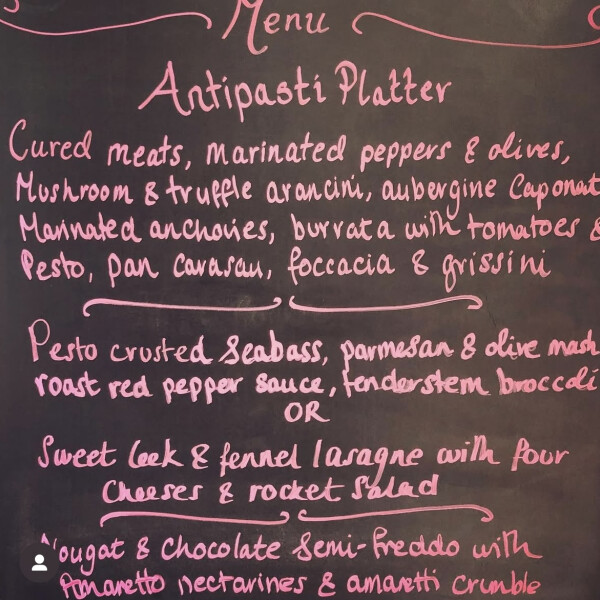 Menu
Antipasti Platter
Cured meats, marinated peppers & olives,
Mushroom & truffle arancini, aubergine Caponat
Marinated anchovies, burrata with tomatoes &
Pesto, pan carasau, foccacia & grissini
Pesto crusted Seabass, parmesan & olive mash
roast red pepper sauce, tenderstem broccoli
OR
Sweet leek & fennel lasagne with four
Cheeses & rocket Salad
Nougat & Chocolate Semi-freddo with
Amaretto nectarines & amaretti crumble